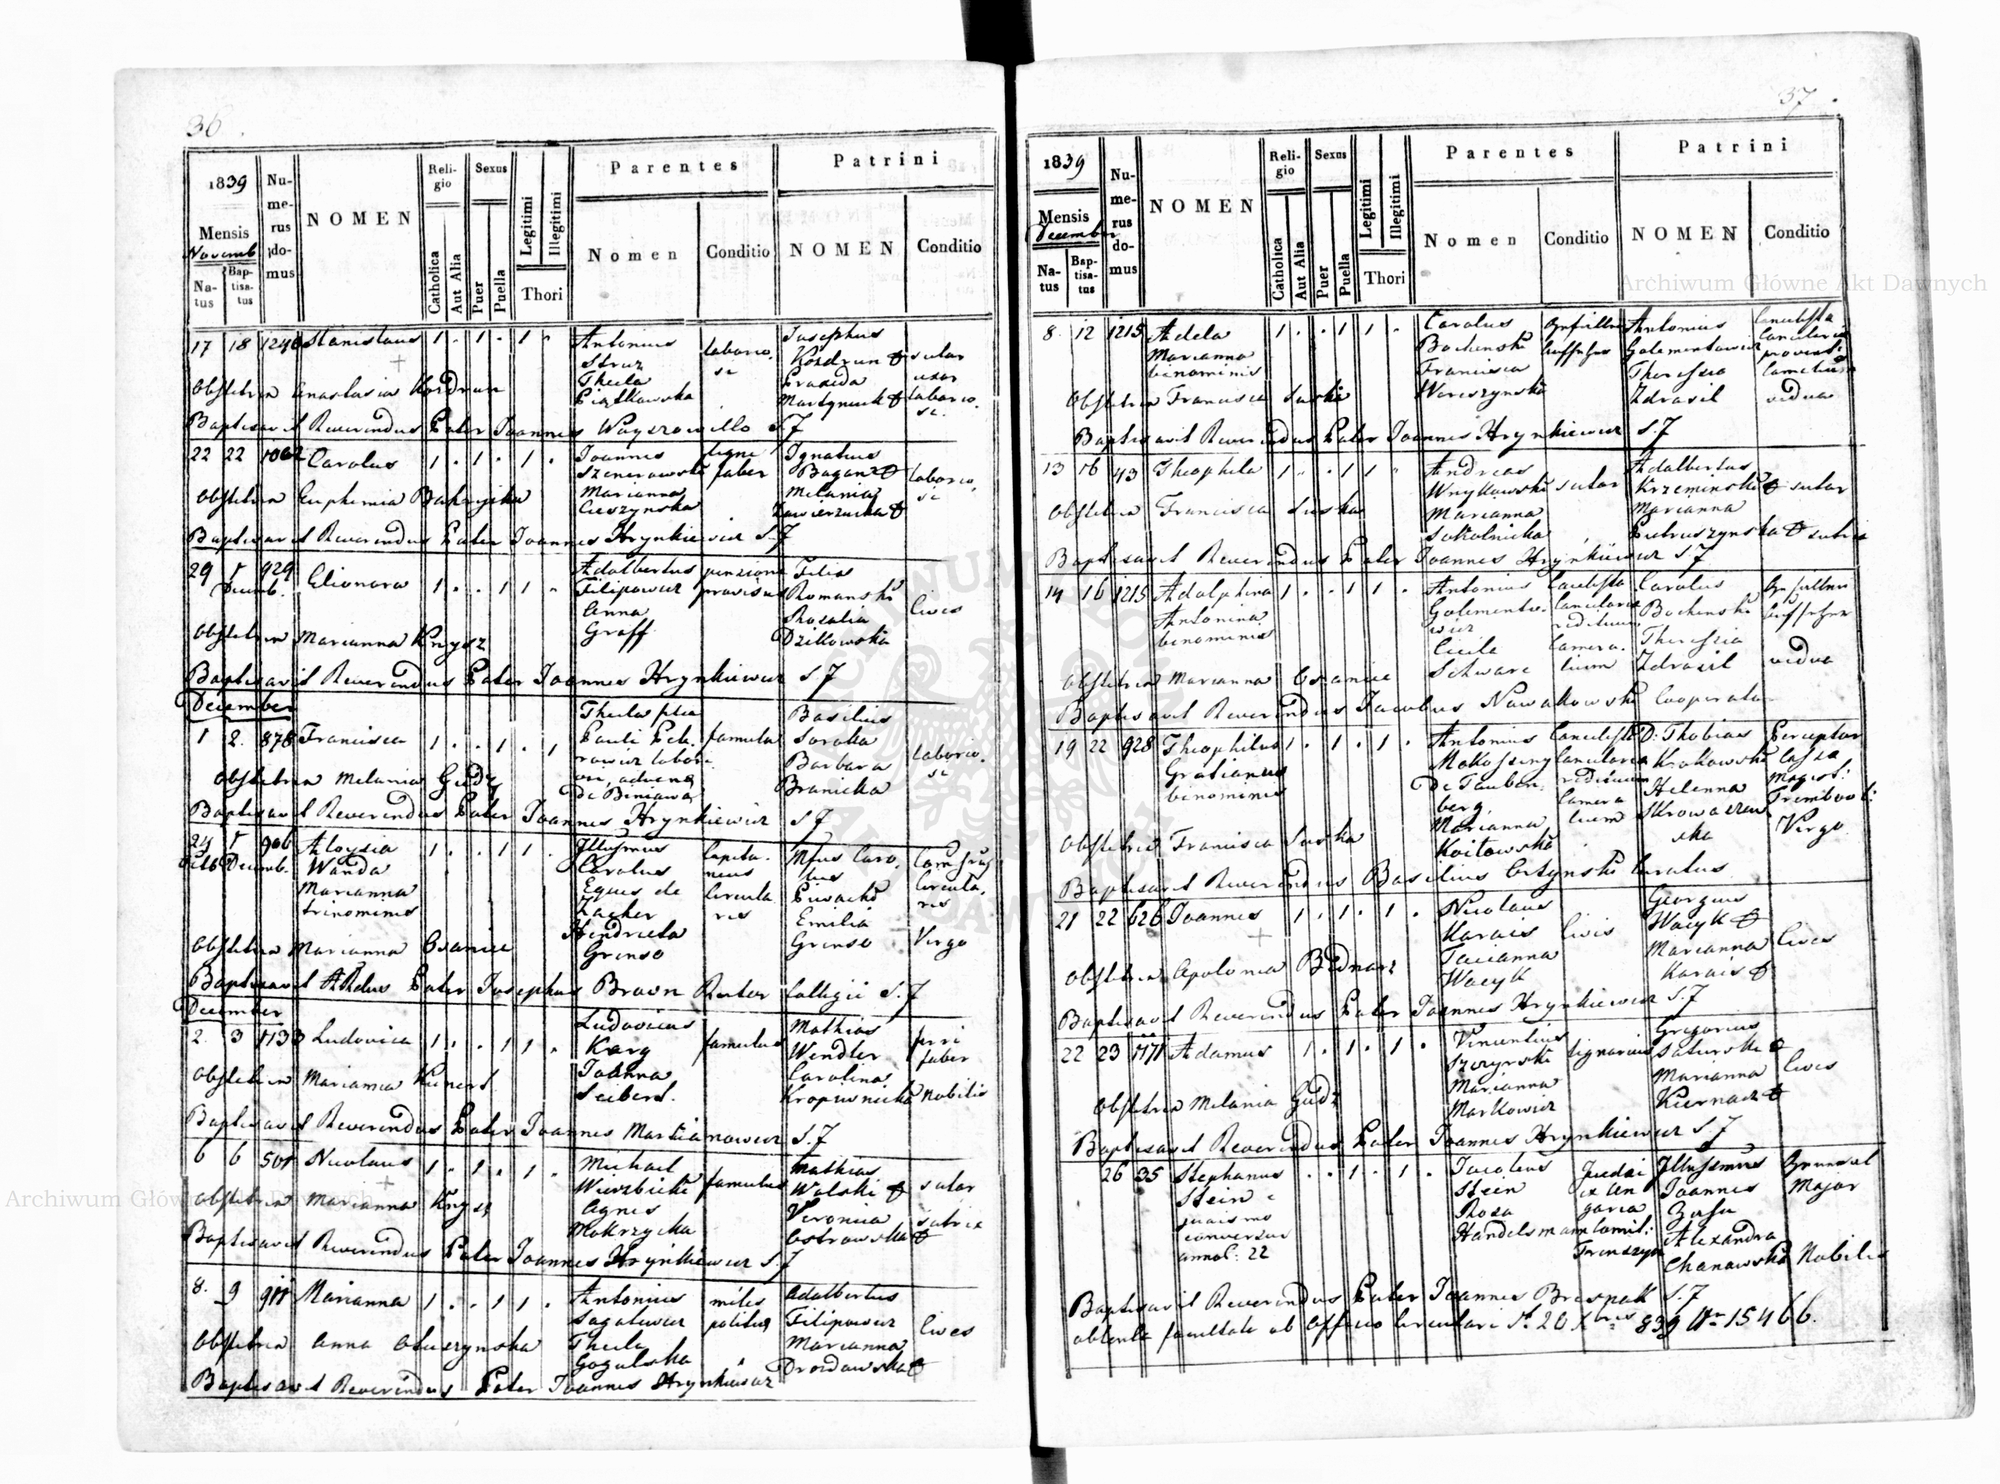 36.
1839
Mensis
Novemb
Na-
tus
Bap-
tisa-
tus
Nu-
me-
rus
do-
mus
NOMEN
Reli-
gio
Catholica
Aut Alia
Sexus
Puer
Puella
Legitimi
Illegitimi
Thori
Parentes
Nomen
Conditio
Patrini
NOMEN
Conditio
17 18 1246 Stanislaus 1 . 1 . 1 "
Antonius
Struz
Thecla
Piątkowska
laborio.
si
Josephus
Kozdrun
Praxida
Martyniuk
sutor
uxor
laborio.
si.
Obstetrix Anastasia Kozdrun
Baptisavit Reverendus Pater Joannes Woyszwillo S.J
22 22 1062 Carolus 1 . 1 . 1 .
Joannes
Szenerowski
Marianna
Cieszynska
ligni
faber
Ignatius
Baganz
Melania
Zawierzucha
laborio.
si
Obstetrix Euphemia
Baptisavit Reverendus Pater Joannes Hrynkiewicz S.J
29 1 929 Elionora 1 . . 1 1 .
Decemb.
Adalbertus
Filipowicz
Anna
Graff
Felix
Romanski
Rosalia
Dzikowska
Cives
Obstetrix Marianna Knysz
Baptisavit Reverendus Pater Joannes Hrynkiewicz S.J
December
1 2. 878 Francisca 1 . . 1 . 1
Thecla filia
Pauli Pet.
rowicz labori
osi, advena
de Biniawa
famula
Basilius
Soroka
Barbara
Branicka
laborio.
si
Obstetrix Melania Gudz
Baptisavit Reverendus Pater Joannes Hrynkiewicz S.J
24 1 906 Aloysia 1 . . 1 1 .
Octob Decemb. Wanda
Marianna
trinominis
Illustmus
Carolus
Eques de
Zacher
Hendrieta
Grenso
Capita.
neus
Circula.
ris
Caro.
lus
Emilia
Grenso
Circula.
ris
Virgo
Obstetrix Marianna
Baptisavit Pater Josephus Brown Rector Collegii S.J
December
2. 3 1133 Ludovica 1 . . 1 1 .
Ludovicus
Karg
Joanna
Seibert.
famulus
Mathias
Wendler
Carolina
Kropiwnicka
ferri
faber
Nobilis
Obstetrix Marianna Kunert
Baptisavit Reverendus Pater Joannes Marcianowicz S.J
6 6 501 Nicolaus 1 . 1 . 1 .
Michael
Wierzbicki
Agnes
Mokrzycka
famulus
Mathias
Wolski
Veronica
Ostrowska
sutor
sutrix
Obstetrix Marianna Knysz
Baptisavit Reverendus Pater Joannes Hrynkiewicz S.J
8. 9 911 Marianna 1 . . 1 1 .
Antonius
Sagatowicz
Thecla
Gogulska
miles
politus
Adalbertus
Filipowicz
Marianna
Drozdowska
Cives
Obstetrix Anna
Baptisavit Reverendus Pater Joannes Hrynkiewicz
37.
1839
Mensis
December
Na-
tus
Bap-
tisa-
tus
Nu-
me-
rus
do-
mus
NOMEN
Reli-
gio
Catholica
Aut Alia
Sexus
Puer
Puella
Legitimi
Illegitimi
Thori
Parentes
Nomen
Conditio
Patrini
NOMEN
Conditio
8. 12 1215 Adela 1 . . 1 1 .
Marianna
binominis
Carolus
Bochenski
Francisca
Woroszynska
Antonius
Golemontowicz
Theressia
Zdrasil
Cancellista
Cancelariae
vidua
Obstetrix Francisca Suska
Baptisavit Reverendus Pater Joannes Hrynkiewicz S.J
13 16 43 Theophila 1 . . 1 1 "
Andreas
Wnykowski
Marianna
Sokolnicka
sutor
Adalbertus
Krzeminski
Marianna
Pietruszynska
sutor
sutrix
Obstetrix Francisca Suska
Baptisavit Reverendus Pater Joannes Hrynkiewicz S.J
14 16 1215 Adolphina 1 . . 1 1 .
Antonina
binominis
Antonius
Golemonto.
wicz
Cecile
Schwarc
Cancellista
Cancelariae
Camera.
lium
Carolus
Bochenski
Theressia
Zdrasil
vidua
Obstetrix Marianna
Baptisavit Reverendus Jacobus Nowakowski Cooperator
19 22 928 Theophilus 1 . 1 . 1 .
Gratianus
binominis
Antonius
Mokossiny
de Tauben.
berg.
Marianna
Koitowska
Cancellista
Cancelariae
Camera
lium
D: Thobias
Krokowski
Helenna
Skrowaczew
ska
Perceptor
Cassa
Magist:
Trembowl:
Virgo
Obstetrix Francisca Suska
Baptisavit Reverendus Basilius Curatus
21 22 626 Joannes 1 . 1 . 1 .
Nicolaus
Karais
Tacianna
Wacyk
Civis
Georgius
Wacyk
Marianna
Karais
Cives
Obstetrix Apolonia Bednarz
Baptisavit Reverendus Pater Joannes Hrynkiewicz S.J
22 23 1171 Adamus 1 . 1 . 1 .
Vincentius
Szczyrski
Marianna
Markowicz
lignarius
Gregorius
Saturski
Marianna
Kiernacz
Cives
Obstetrix Melania Gudz
Baptisavit Reverendus Pater Joannes Hrynkiewicz S.J
26 35 Stephanus . . 1 . 1 .
Stein e
judaismo
conversus
annor: 22
Jacobus
Stein
Rosa
Handelsmann
Judai
ex Un
garia
Comit:
Trenszyn
Illustrmus
Joannes
Alexandra
Chanowska
Major
Nobilis
Baptisavit Reverendus Pater Joannes S.J
obtenta facultate ab Officio Circulari d. 20 Xbris 839 Nro 15466.
Archiwum Główne Akt Dawnych
Archiwum Główne Akt Dawnych